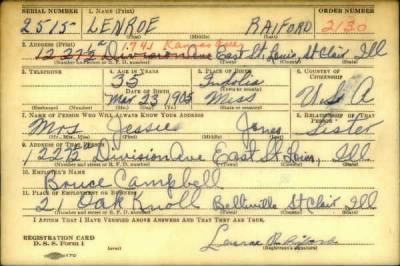 SERIAL NUMBER 1. NAME (Print) ORDER NUMBER
2515 LENROE RAIFORD 2130
2. ADDRESS (Print) 1741 Kansas Ave
1222 Division Ave East St. Louis, St Clair, Ill
3. TELEPHONE 4. AGE IN YEARS 5. PLACE OF BIRTH 6. COUNTRY OF CITIZENSHIP
35 Indola
DATE OF BIRTH
Mar 23 1905 Miss U.S.A
(Exchange) (Number) (Mo.) (Day) (Yr.) (State or country)
7. NAME OF PERSON WHO WILL ALWAYS KNOW YOUR ADDRESS 8. RELATIONSHIP OF THAT PERSON
Mrs Jessie Jones Sister
(Mr., Mrs., Miss) (First) (Middle) (Last)
9. ADDRESS OF THAT PERSON
1222 Division Ave East St. Louis, Ill.
(Number and street or R. F. D. number) (Town) (County) (State)
10. EMPLOYER'S NAME
Bruce Campbell
11. PLACE OF EMPLOYMENT OR BUSINESS
21 Oak Knoll Belleville St Clair, Ill
(Number and street or R. F. D. number) (Town) (County) (State)
I AFFIRM THAT I HAVE VERIFIED ABOVE ANSWERS AND THAT THEY ARE TRUE.
REGISTRATION CARD
D. S. S. Form 1